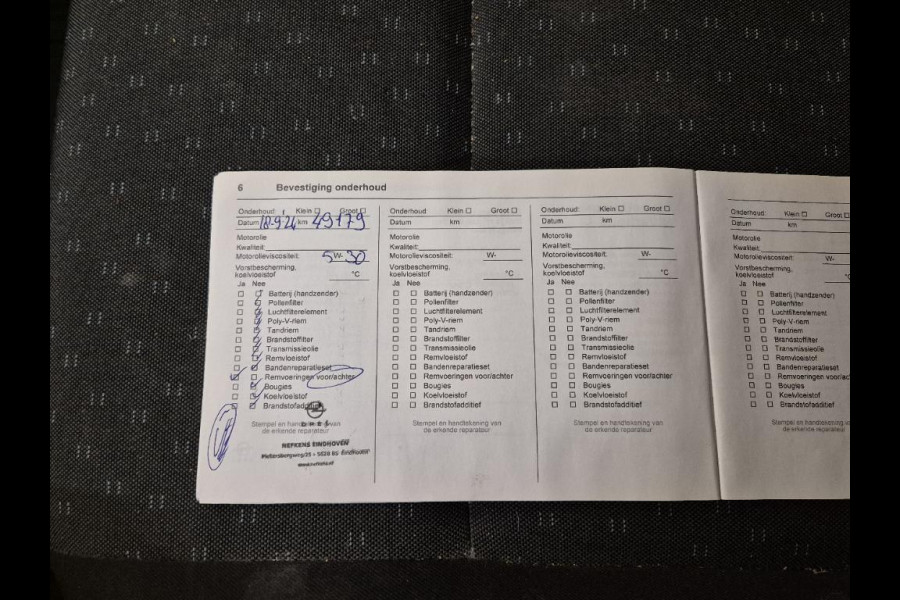 6 Bevestiging onderhoud
Onderhoud: Klein ☐ Groot ☐
Datum 18-9-24 km 49179
Motorolie
Kwaliteit:
Motorolieviscositeit: 5 W- 30
Vorstbescherming,
koelvloeistof °C
Ja Nee
Batterij (handzender)
Pollenfilter
Luchtfilterelement
Poly-V-riem
Tandriem
Brandstoffilter
Transmissieolie
Remvloeistof
Bandenreparatieset
Remvoeringen voor/achter
Bougies
Koelvloeistof
Brandstofadditief
Stempel en handtekening van
de erkende reparateur
OPEL
NEFKENS EINDHOVEN
Onderhoud Klein ☐ Groot ☐
Datum km
Motorolie
Kwaliteit:
Motorolieviscositeit: W-
Vorstbescherming,
koelvloeistof °C
Ja Nee
☐ ☐ Batterij (handzender)
☐ ☐ Pollenfilter
☐ ☐ Luchtfilterelement
☐ ☐ Poly-V-riem
☐ ☐ Tandriem
☐ ☐ Brandstoffilter
☐ ☐ Transmissieolie
☐ ☐ Remvloeistof
☐ ☐ Bandenreparatieset
☐ ☐ Remvoeringen voor/achter
☐ ☐ Bougies
☐ ☐ Koelvloeistof
☐ ☐ Brandstofadditief
Stempel en handtekening van
de erkende reparateur
Onderhoud: Klein ☐ Groot ☐
Datum km
Motorolie
Kwaliteit:
Motorolieviscositeit: W-
Vorstbescherming,
koelvloeistof °C
Ja Nee
☐ ☐ Batterij (handzender)
☐ ☐ Pollenfilter
☐ ☐ Luchtfilterelement
☐ ☐ Poly-V-riem
☐ ☐ Tandriem
☐ ☐ Brandstoffilter
☐ ☐ Transmissieolie
☐ ☐ Remvloeistof
☐ ☐ Bandenreparatieset
☐ ☐ Remvoeringen voor/achter
☐ ☐ Bougies
☐ ☐ Koelvloeistof
☐ ☐ Brandstofadditief
Stempel en handtekening van
de erkende reparateur
Onderhoud: Klein ☐ Groot ☐
Datum km
Motorolie
Kwaliteit:
Motorolieviscositeit: W-
Vorstbescherming,
koelvloeistof
Ja Nee
☐ ☐ Batterij (handzender)
☐ ☐ Pollenfilter
☐ ☐ Luchtfilterelement
☐ ☐ Poly-V-riem
☐ ☐ Tandriem
☐ ☐ Brandstoffilter
☐ ☐ Transmissieolie
☐ ☐ Remvloeistof
☐ ☐ Bandenreparatieset
☐ ☐ Remvoeringen voor/ac
☐ ☐ Bougies
☐ ☐ Koelvloeistof
☐ ☐ Brandstofadditief
Stempel en handtekening
de erkende reparat